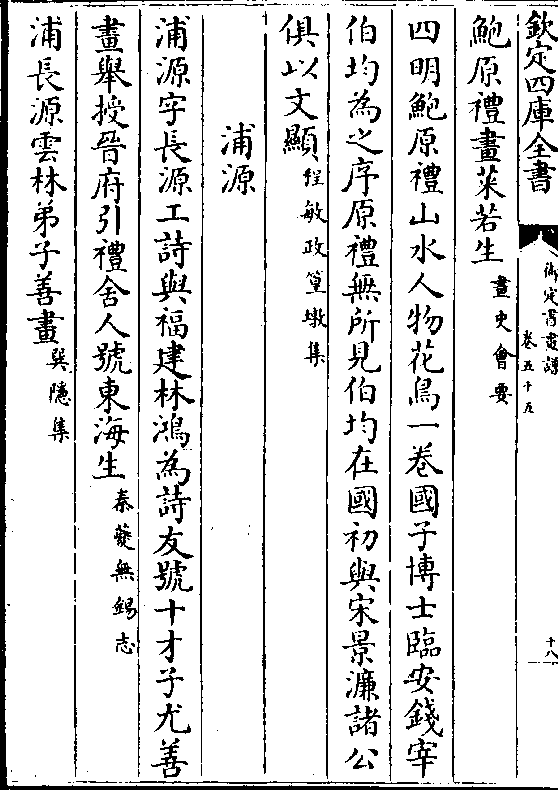 欽定四庫全書
御定書畫譜
卷五十五
十八
鮑原禮畫萊若生畫史會要
四明鮑原禮山水人物花鳥一卷國子博士臨安錢宰
伯均為之序原禮無所見伯均在國初與宋景濂諸公
俱以文顯程敏政篁墩集
浦源
浦源字長源工詩與福建林鴻為詩友號十才子尤善
畫舉授晉府引禮舍人號東海生秦夔無錫志
浦長源雲林弟子善畫巽隱集